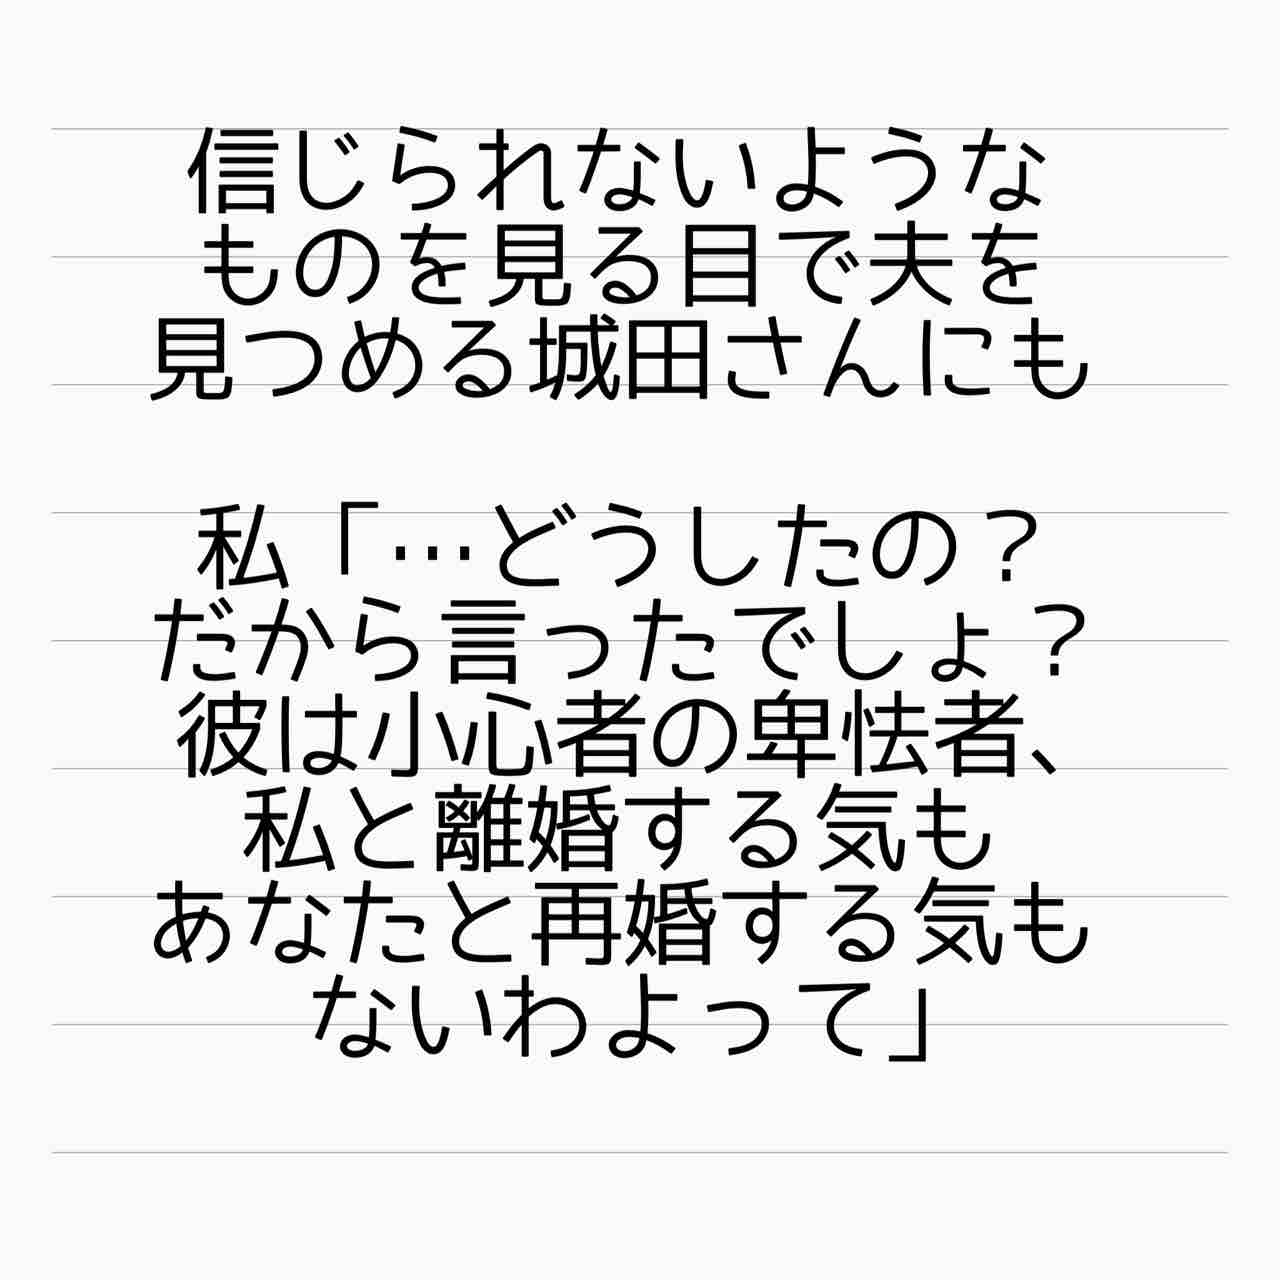 信じられないような
ものを見る目で夫を
見つめる城田さんにも
私「…どうしたの？
だから言ったでしょ？
彼は小心者の卑怯者、
私と離婚する気も
あなたと再婚する気も
ないわよって」